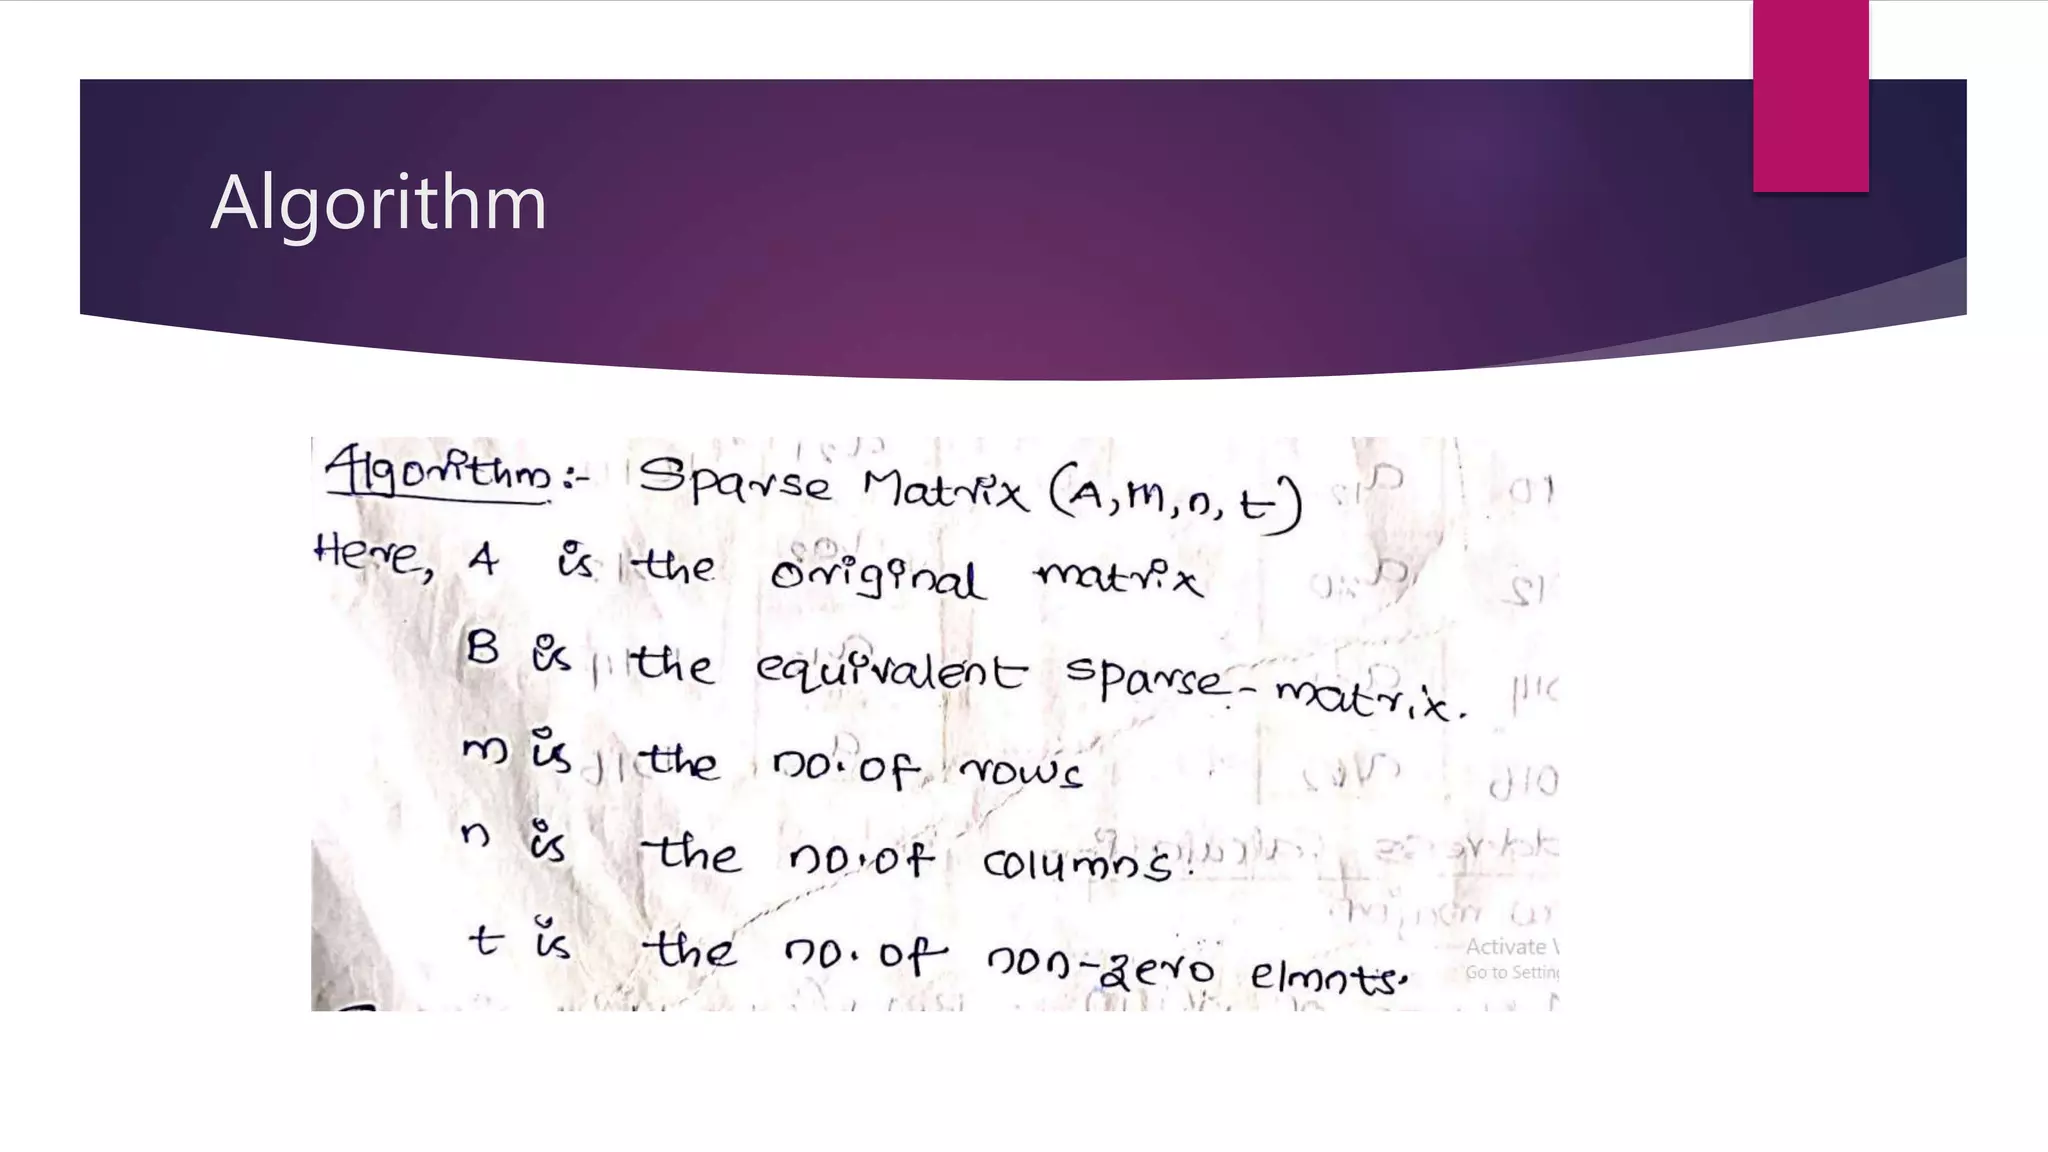 Algorithm
Algorithm:- Sparse Matrix (A,m,n,t)
Here, A is the original matrix
B is the equivalent sparse-matrix.
m is the no. of rows
n is the no. of columns.
t is the no. of non-zero elmnts.
Activate
Go to Setting